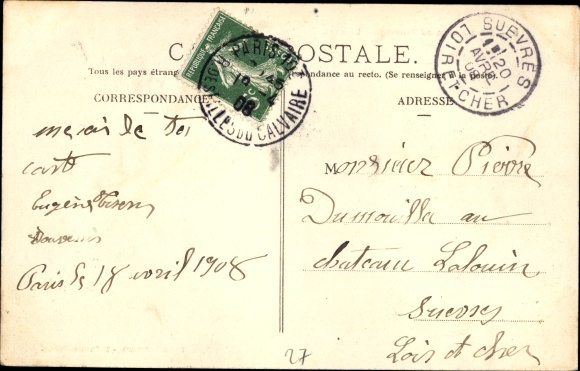 CARTE POSTALE.
Tous les pays étrangers
correspondance au recto. (Se renseigner à la poste).
CORRESPONDANCE
ADRESSE
REPUBLIQUE FRANÇAISE
PARIS
FILLES DU CALVAIRE
08
SUEVRES
20
AVRIL
LOIR ET CHER
merci de ta
carte
Eugène
Paris le 18 avril 1908
Monsieur Pierre
Dumouilla au
chateau Lalouin
Suevres
Loir et cher
27